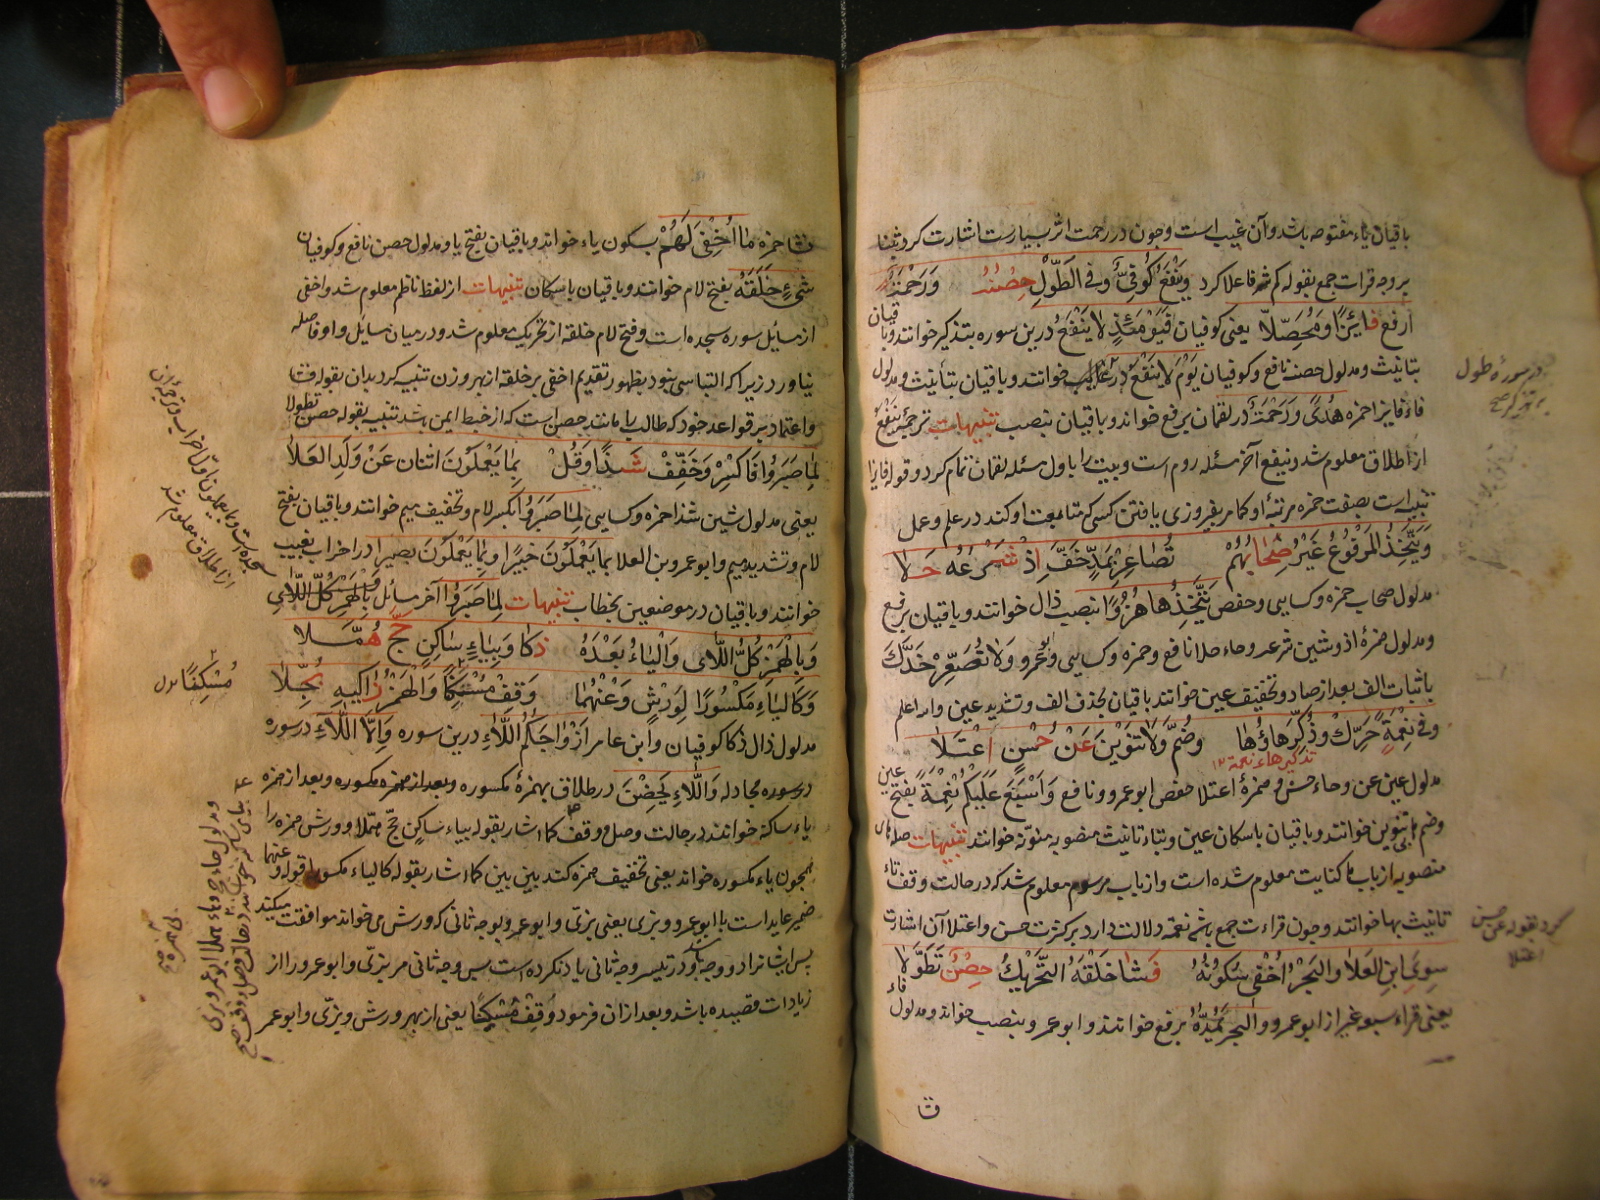 باقیان یاء مفتوحه باشد و آن غیب است و چون در رحمت اثر بسیارست اشارت کرد بثنا
بر وجه قرات جمع بقوله کم شه فاعلا کرد وَیَنْفَعُ کُوفِیٌّ وَفی الطَّوْلِ حِصْنُهُ وَرَحْمَةً
ارفع فَایِزًا وَمُحَصِّلاً یعنی کوفیان فَیَوْمَئِذٍ لاَیَنْفَعُ درین سوره بتذکیر خوانند و با قیان
بتانیث و مدلول حصنه نافع و کوفیان یَوْمَ لاَیَنْفَعُ در خوانند و باقیان بتأنیث و مدلول
فاء فایز احمزه هُدًی وَرَحْمَةً در لقمان برفع خواند و باقیان بنصب تنبیهات ترجمهٔ ینفع
از اطلاق معلوم شد و ینفع آخر مسئله روم است و بیت را باول مسئله لقمان تمام کرد و قوله فایزا
تنبیه است بصفت حمزه مرتبه او کما مر بفیروزی یافتن کسی که متابعت او کند در علم و عمل
وَیَتَّخِذَ المَرْفُوعُ غَیْرُ صِحَابِهِمْ تُصَاعِرْ بِمَدٍّ خَفَّ اِذْ شَرْعُهُ حَلاَ
مدلول صحاب حمزه و کسایی و حفص یَتَّخِذَهَا هُزُوًا بنصب ذال خوانند و باقیان برفع
و مدلول همزهٔ اذ و شین شرعه و حاء حلا نافع و حمزه و کسایی و ابوعمرو وَلاَ تُصَعِّرْ خَدَّكَ
باثبات الف بعد از صاد و تخفیف عین خوانند باقیان بحذف الف و تشدید عین والله اعلم
وَفی نِعْمَةٍ حَرِّكْ وَذُکِّرَ هَاؤُهَا وَضُمَّ وَلاَ تَنْوِینَ عَنْ حُسْنٍ اعْتَلاَ
تذکیر هاء نعمة ۱۲
مدلول عین عن و حاء حسن و همزهٔ اعتلا حفص ابوعمرو و نافع وَأَسْبَغَ عَلَیْکُمْ نِعْمَهُ بفتح عین
وضم ها بی تنوین خوانند و باقیان باسکان عین و بتاء تانیث منصوبه منونه خوانند تنبیهات صله های
منصوبه از باب ها کنایت معلوم شده است و از باب مرسوم معلوم شد که در حالت وقف تاء
تانیث بها خوانند و چون قراءت جمع باشد نعمه دلالت دارد بر کثرت حسن و اعتلا آن اشارت
سِوَی ابْنِ العَلاَ وَالبَحْرُ اُخْفِی سُکُونُهُ فَشَا خَلْقَهُ التَّحْرِیكُ حِصْنٌ تَطَوَّلاَ
یعنی قراء سبعه غیر از ابوعمرو والبحرُ یَمُدُّهُ برفع خوانند و ابوعمرو بنصب خواند و مدلول فاء
ق
در سورهٔ طول
بتذکیر صح
کرد بقوله عن حسن
اعتلا
فشا حمزه مَا اُخْفِی لَهُمْ بسکون یاء خواند و باقیان بفتح یا و مدلول حصن نافع و کوفیان
شَیْءٍ خَلَقَهُ بفتح لام خوانند و باقیان باسکان تنبیهات از لفظ ناظم معلوم شد و اخفی
از مسایل سوره سجده است و فتح لام خلقه از تحریک معلوم شد و در میان مسایل واو فاصله
نیاورد زیرا که التباسی نبود بظهور تقدیم اخفی بر خلقه از بهر وزن تنبیه کرد بدان بقوله فشا
و اعتماد بر قواعد خود که طالب را مانند حصن است که از خبط ایمن باشد تنبیه بقوله حصن تطولا
لِمَا صَبَرُوا فَاکْسِرْ وَخَفِّفْ شَذًا وَقُلْ بِمَا یَعْمَلُونَ اثْنَانِ عَنْ وَلَدِ العَلاَ
یعنی مدلول شین شذا حمزه و کسایی لِمَا صَبَرُوا بکسر لام و تخفیف میم خوانند و باقیان بفتح
لام و تشدید میم و ابوعمرو بن العلا بِمَا یَعْمَلُونَ خَبِیرًا و بِمَا یَعْمَلُونَ بَصِیرًا در احزاب بغیب
خوانند و باقیان در موضعین بخطاب تنبیهات لِمَا صَبَرُوا آخر مسائل
وَبِالهَمْزِ کُلُّ اللاَّءِ وَالیَاءُ بَعْدَهُ ذَکَا وَبِیَاءٍ سَاکِنٍ حَجَّ هُمَّلاَ
وَکَالیَاءِ مَکْسُورًا لِوَرْشٍ وَعَنْهُمَا وَقِفْ مُسْکِنًا وَالهَمْزُ زَاکِیهِ بُجِّلاَ
مدلول ذال ذکا کوفیان و ابن عامر أَزْوَاجَکُمُ اللاَّءِ درین سوره وَاِلاَّ اللاَّءِ در سوره
در سوره مجادله وَاللاَّءِ یَحِضْنَ در طلاق بهمزهٔ مکسوره و بعد از همزه مکسوره و بعد از همزه
یاء ساکنه خوانند در حالت وصل و وقف کما اشار بقوله بیاء ساکن حج هملا و ورش همزه را
همچون یاء مکسوره خواند یعنی تخفیف همزه کند بین بین کما اشار بقوله کالیاء مکسورا قوله و عنهما
ضمیر عاید است با ابوعمرو و بزی یعنی بزی و ابوعمرو بوجه ثانی که ورش می خواند موافقت میکنند
پس ایشانراد و وجه باشد و در تیسیر وجه ثانی یاد نکرده است پس وجه ثانی مر بزی و ابوعمرو را از
زیادات قصیده باشد و بعد از ان فرمود وَقِفْ مُسْکِنًا یعنی از بهر ورش و بزی و ابوعمر
مُسْکِنًا